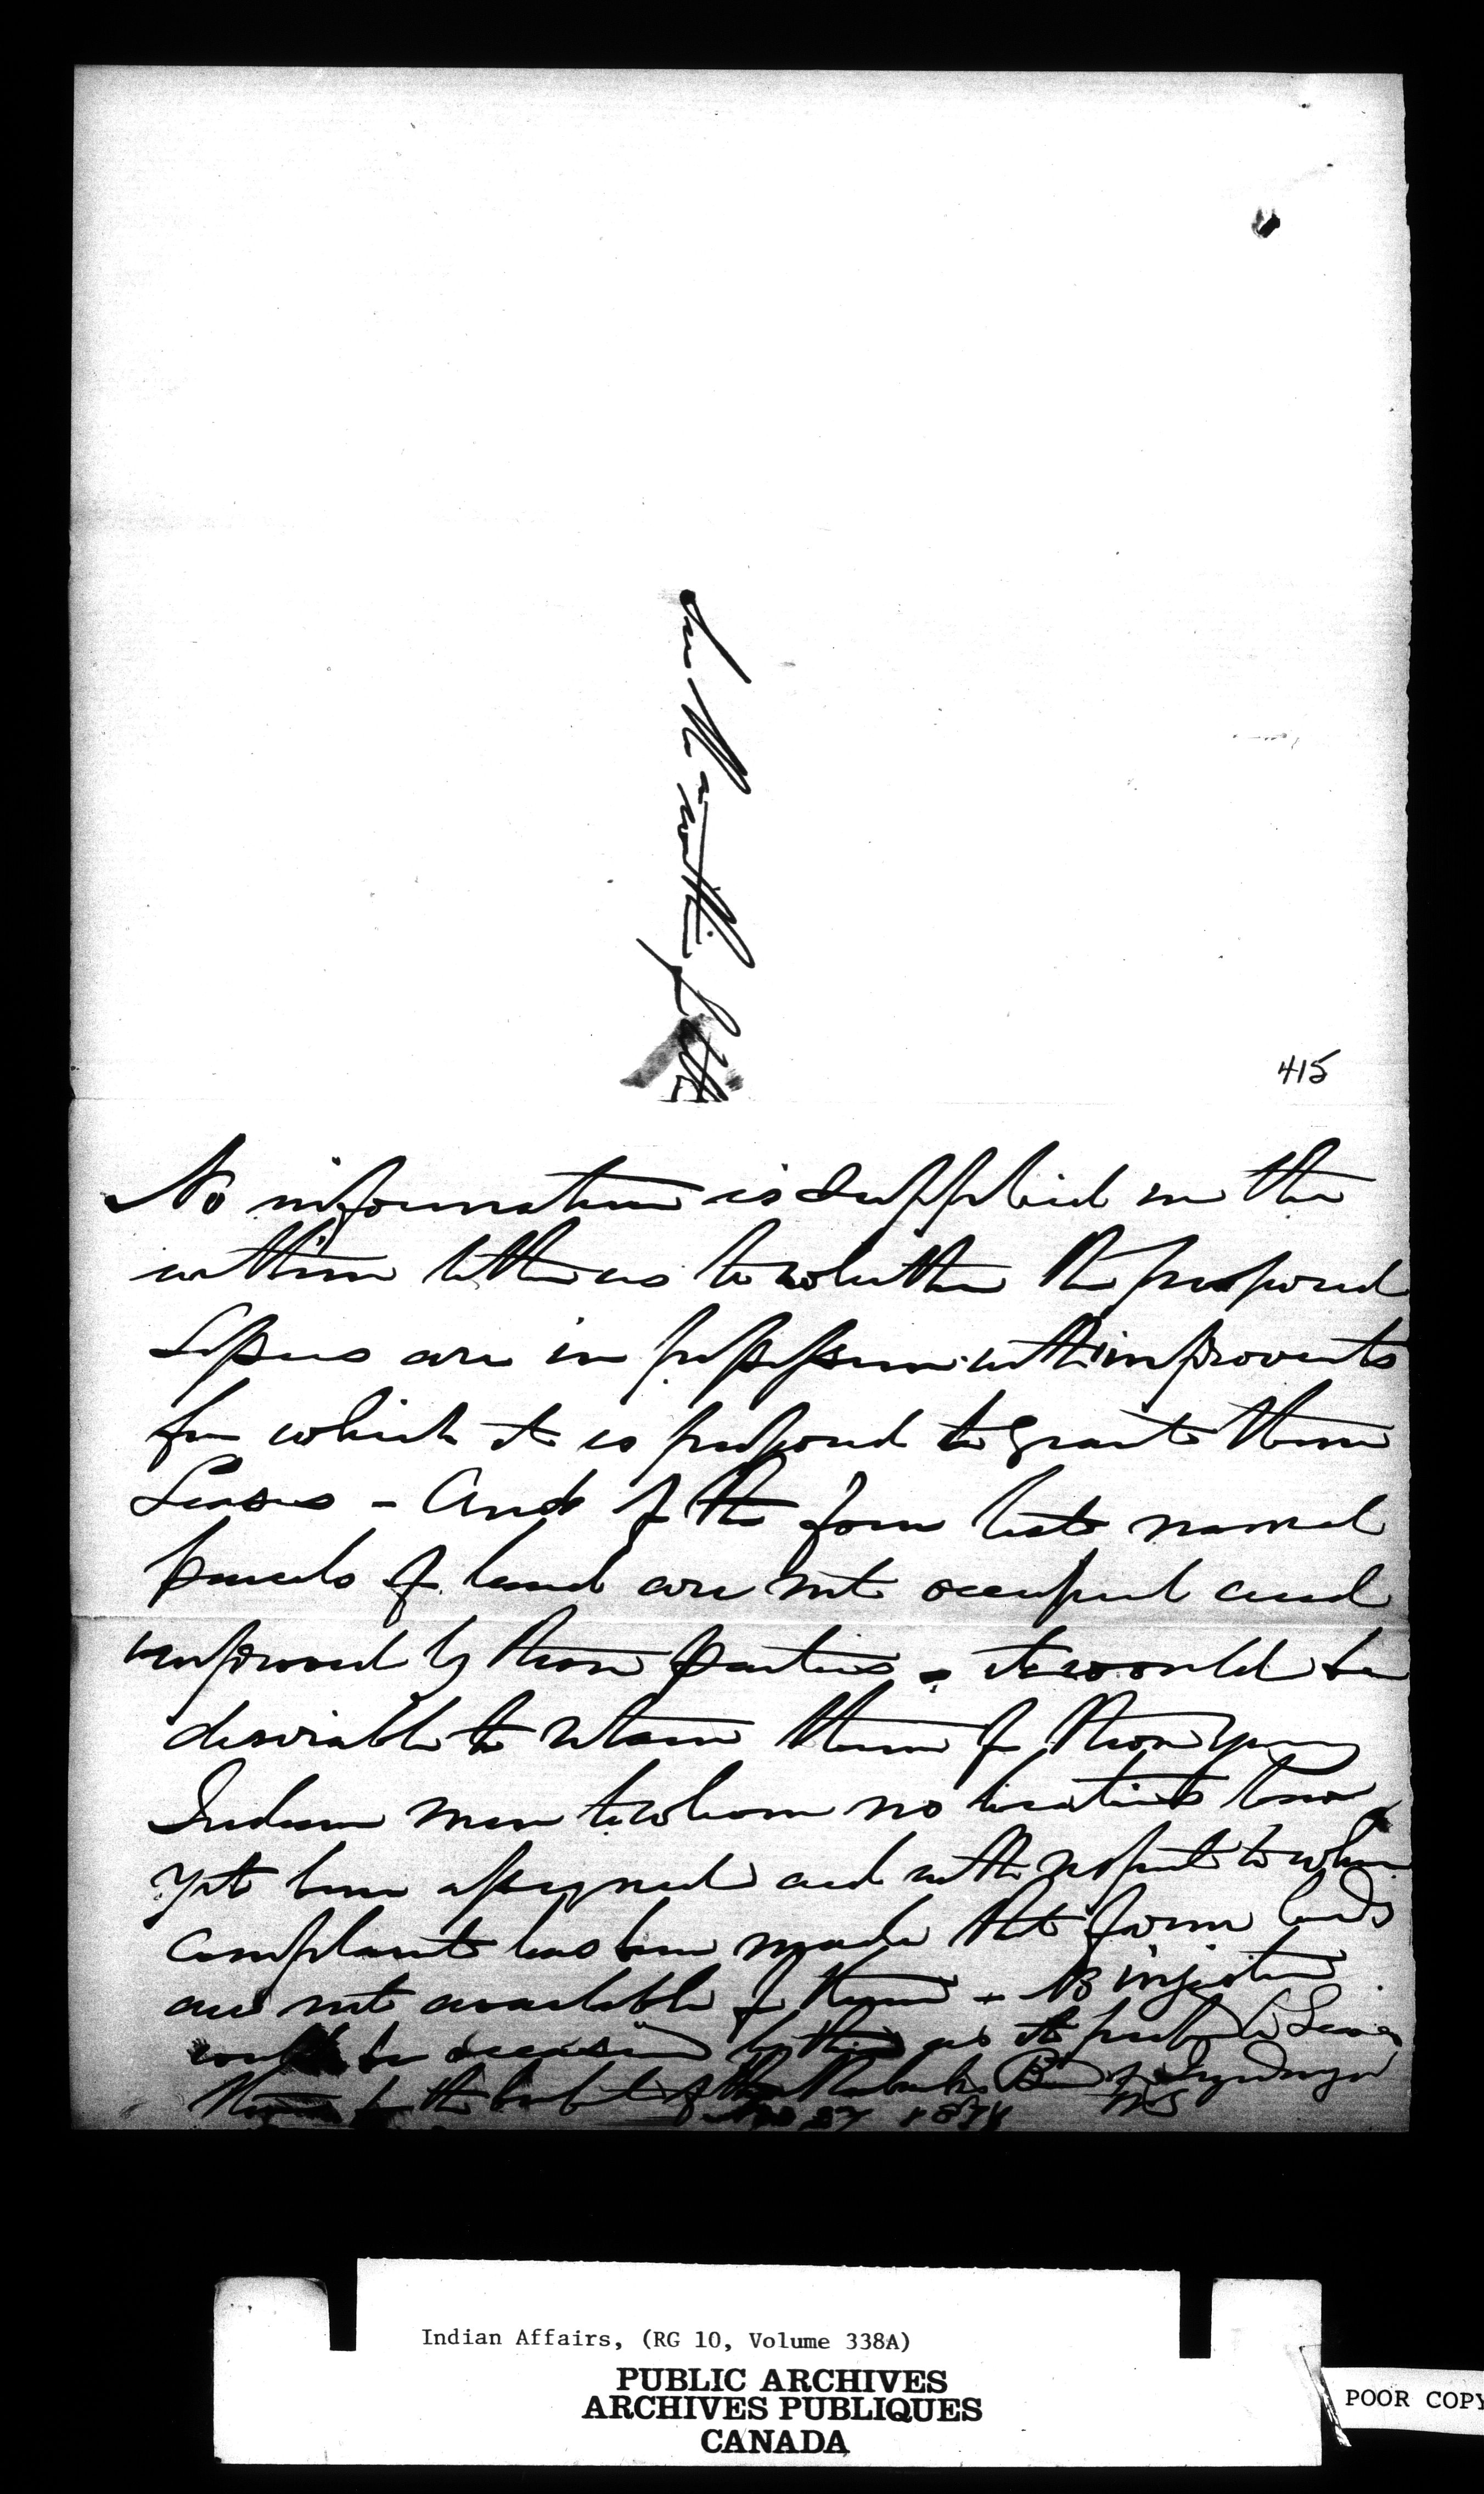 415
No information is supplied in the
within letter as to whether the proposed
Lessees are in possession with improvents
for which it is proposed to grant them
Leases - And if the four last named
parcels of land are not occupied and
improved by these parties - it would be
desirable to retain them for those young
Indian men to whom no locations have
yet been assigned and with respect to whom
complaint has been made that farm lands
are not available for them - No injustice
would be occasioned by this as the
for the benefit of the
Indian Affairs, (RG 10, Volume 338A)
PUBLIC ARCHIVES
ARCHIVES PUBLIQUES
CANADA
POOR COPY